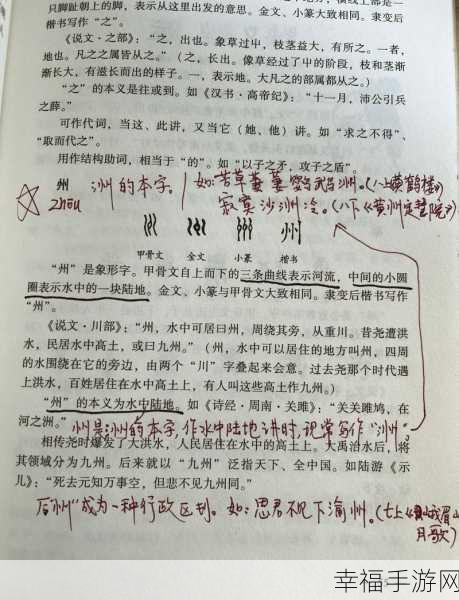 只脚趾朝上的脚，表示从这里出发的意思。金文、小篆大致相同。隶变后
楷书写作“之”。
《说文·之部》：“之，出也。象草过屮，枝茎益大，有所之。一者，
地也。凡之之属皆从之。”（之，长出。像草经过了屮的阶段，枝和茎渐
渐长大，有滋长而出的样子。一，表示地。大凡之的部属都从之。）
“之”的本义是往或到。如《汉书·高帝纪》：“十一月，沛公引兵
之薛。”
可作代词，当这、此讲，又当它（她、他）讲。如“求之不得”、
“取而代之”。
用作结构助词，相当于“的”。如“以子之矛，攻子之盾”。
州 洲的本字。如：芳草萋萋鹦鹉洲。（八上《黄鹤楼》）
zhōu 寂寞沙洲冷。（八下《黄州定慧院》）
州
甲骨文 金文 小篆 楷书
“州”是象形字。甲骨文自上而下的三条曲线表示河流，中间的小圆
圈表示水中的一块陆地。金文、小篆与甲骨文大致相同。隶变后楷书写作
“州”。
《说文·川部》：“州，水中可居曰州，周绕其旁，从重川。昔尧遭洪
水，民居水中高土，或曰九州。”（州，水中可以居住的地方叫州，四周
的水围绕在它的旁边，由两个“川”字叠起来会意。过去尧那个时代遇
上洪水，百姓居住在水中高土上，有人叫这些高土作九州。）
“州”的本义为水中陆地。如《诗经·周南·关雎》：“关关雎鸠，在
河之洲。”州是洲的本字，作水中陆地讲时，现常写作“洲”。
相传尧时爆发了大洪水，人民居住在水中的高土上。大禹治水后，将
其领域分为九州。后来就以“九州”泛指天下、全中国。如陆游《示
儿》：“死去元知万事空，但悲不见九州同。”
后“州”成为一种行政区划。如：思君不见下渝州。（七上《峨眉山
月歌》）
幸福手游网